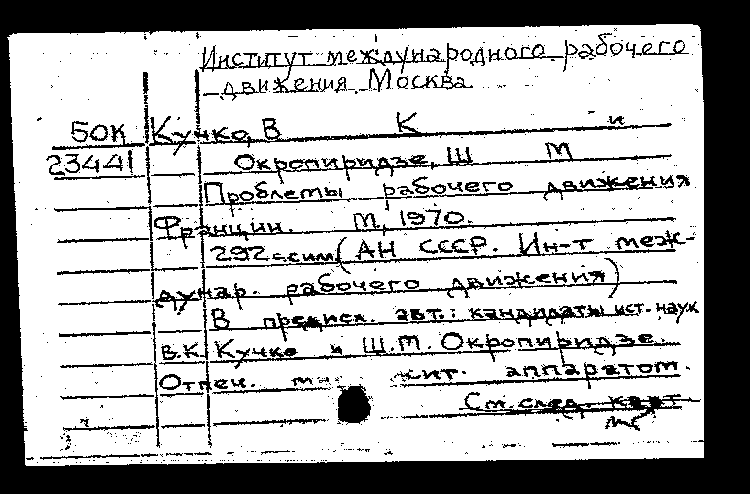 Институт международного рабочего
движения Москва
50К Кучко, В К и
23441 Окропиридзе, Ш М
Проблемы рабочего движения
Франции. М, 1970.
292 с. (АН СССР. Ин-т меж-
дунар. рабочего движения)
В предисл. авт.: кандидаты ист. наук
В.К. Кучко и Ш.М. Окропиридзе.
Отпеч. аппаратом.
См. след. карт